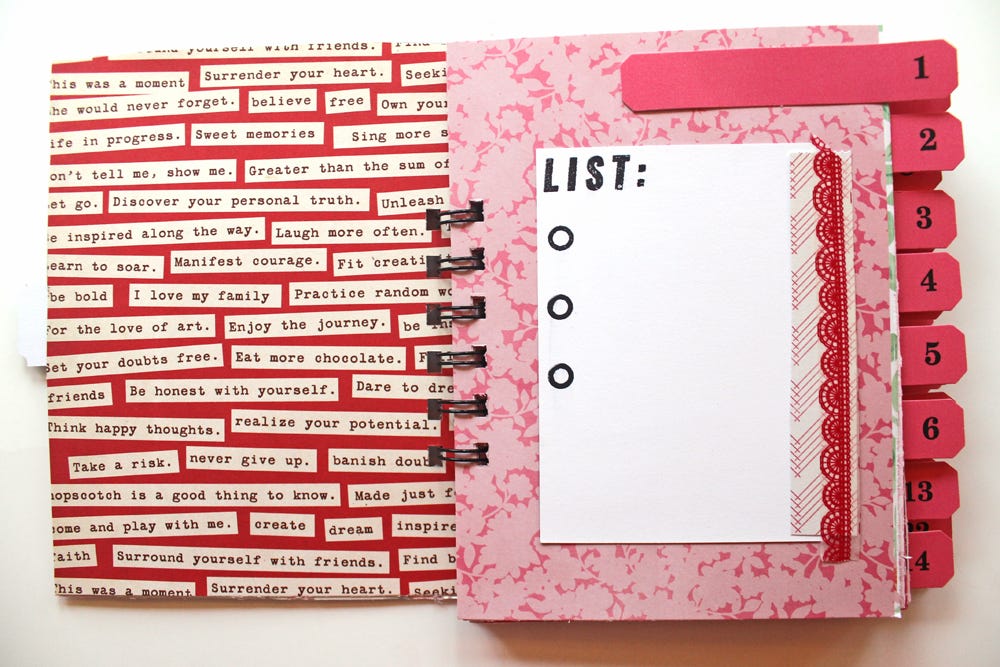 round yourself with friends. Find
his was a moment Surrender your heart. Seeki
he would never forget. believe free Own your
ife in progress. Sweet memories Sing more s
on't tell me, show me. Greater than the sum of
et go. Discover your personal truth. Unleash
e inspired along the way. Laugh more often.
earn to soar. Manifest courage. Fit creati
be bold I love my family Practice random wo
For the love of art. Enjoy the journey. be ins
et your doubts free. Eat more chocolate. F
friends Be honest with yourself. Dare to dre
Think happy thoughts. realize your potential.
Take a risk. never give up. banish doub
hopscotch is a good thing to know. Made just f
come and play with me. create dream inspire
faith Surround yourself with friends. Find b
This was a moment Surrender your heart. Seeki
LIST:
1
2
3
4
5
6
13
14